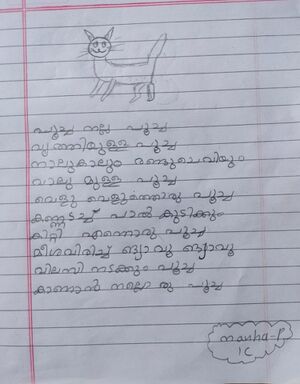 പൂച്ച നല്ല പൂച്ച
വൃത്തിയുള്ള പൂച്ച
നാലുകാലും രണ്ടുചെവിയും
വാലു മുള്ള പൂച്ച
വെളു വെളുത്തൊരു പൂച്ച
കണ്ണടച്ച് പാൽ കുടിക്കും
കിറ്റി എന്നൊരു പൂച്ച
മീശവിരിച്ച് ങ്യാവൂ ങ്യാവൂ
വിലസി നടക്കും പൂച്ച
കാണാൻ നല്ലൊ രു പൂച്ച
manha-P
1C